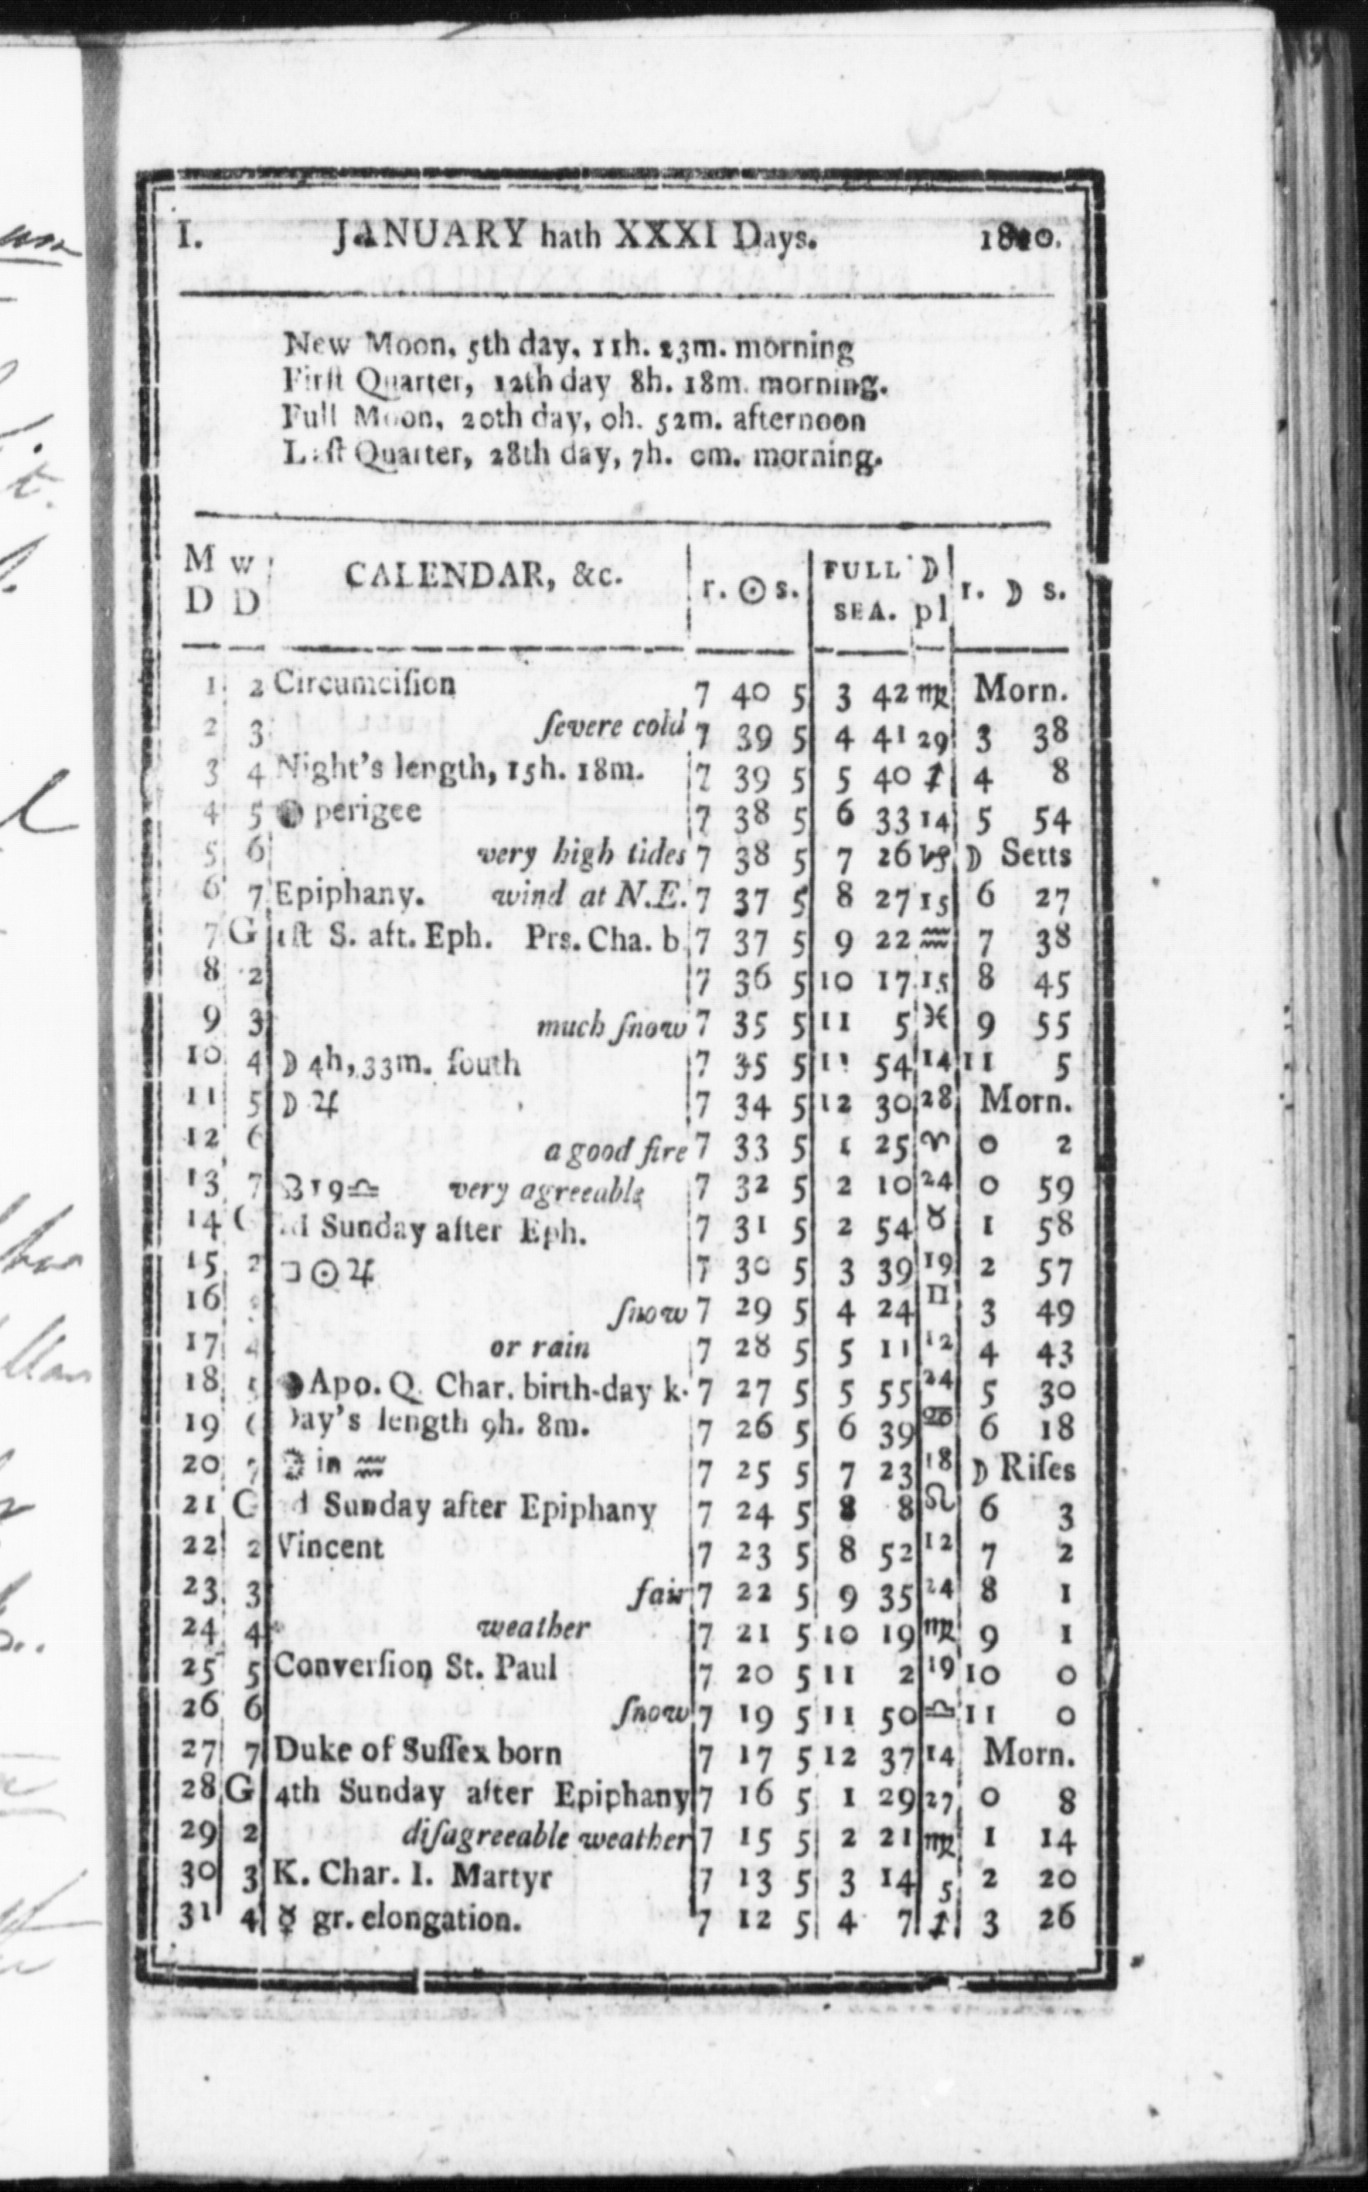 I. JANUARY hath XXXI Days. 1810.
New Moon, 5th day, 11h. 23m. morning
Firſt Quarter, 12th day 8h. 18m. morning.
Full Moon, 20th day, 0h. 52m. afternoon
Laſt Quarter, 28th day, 7h. 0m. morning.
M W CALENDAR, &c. r. ☉ s. FULL ☽ r. ☽ s.
D D SEA. pl
1 2 Circumciſion 7 40 5 3 42 ♏ Morn.
2 3 ſevere cold 7 39 5 4 41 29 3 38
3 4 Night's length, 15h. 18m. 7 39 5 5 40 ♐ 4 8
4 5 ● perigee 7 38 5 6 33 14 5 54
5 6 very high tides 7 38 5 7 26 ♑ ☽ Setts
6 7 Epiphany. wind at N.E. 7 37 5 8 27 15 6 27
7 G 1ſt S. aft. Eph. Prs. Cha. b 7 37 5 9 22 ♒ 7 38
8 2 7 36 5 10 17 15 8 45
9 3 much ſnow 7 35 5 11 5 ♓ 9 55
10 4 ☽ 4h, 33m. ſouth 7 35 5 11 54 14 11 5
11 5 ☽ ♃ 7 34 5 12 30 28 Morn.
12 6 a good fire 7 33 5 1 25 ♈ 0 2
13 7 ☊ 19 ♎ very agreeable 7 32 5 2 10 24 0 59
14 Sunday after Eph. 7 31 5 2 54 ♉ 1 58
15 2 □ ☉ ♃ 7 30 5 3 39 19 2 57
16 ſnow 7 29 5 4 24 ♊ 3 49
17 4 or rain 7 28 5 5 11 12 4 43
18 5 ● Apo. Q. Char. birth-day k. 7 27 5 5 55 24 5 30
19 Day's length 9h. 8m. 7 26 5 6 39 ♋ 6 18
20 7 ☉ in ♒ 7 25 5 7 23 18 ☽ Riſes
21 G d Sunday after Epiphany 7 24 5 8 8 ♌ 6 3
22 2 Vincent 7 23 5 8 52 12 7 2
23 3 fair 7 22 5 9 35 24 8 1
24 4 weather 7 21 5 10 19 ♍ 9 1
25 5 Converſion St. Paul 7 20 5 11 2 19 10 0
26 6 ſnow 7 19 5 11 50 ♎ 11 0
27 7 Duke of Suſſex born 7 17 5 12 37 14 Morn.
28 G 4th Sunday after Epiphany 7 16 5 1 29 27 0 8
29 2 diſagreeable weather 7 15 5 2 21 ♏ 1 14
30 3 K. Char. I. Martyr 7 13 5 3 14 5 2 20
31 4 ☿ gr. elongation. 7 12 5 4 7 ♐ 3 26